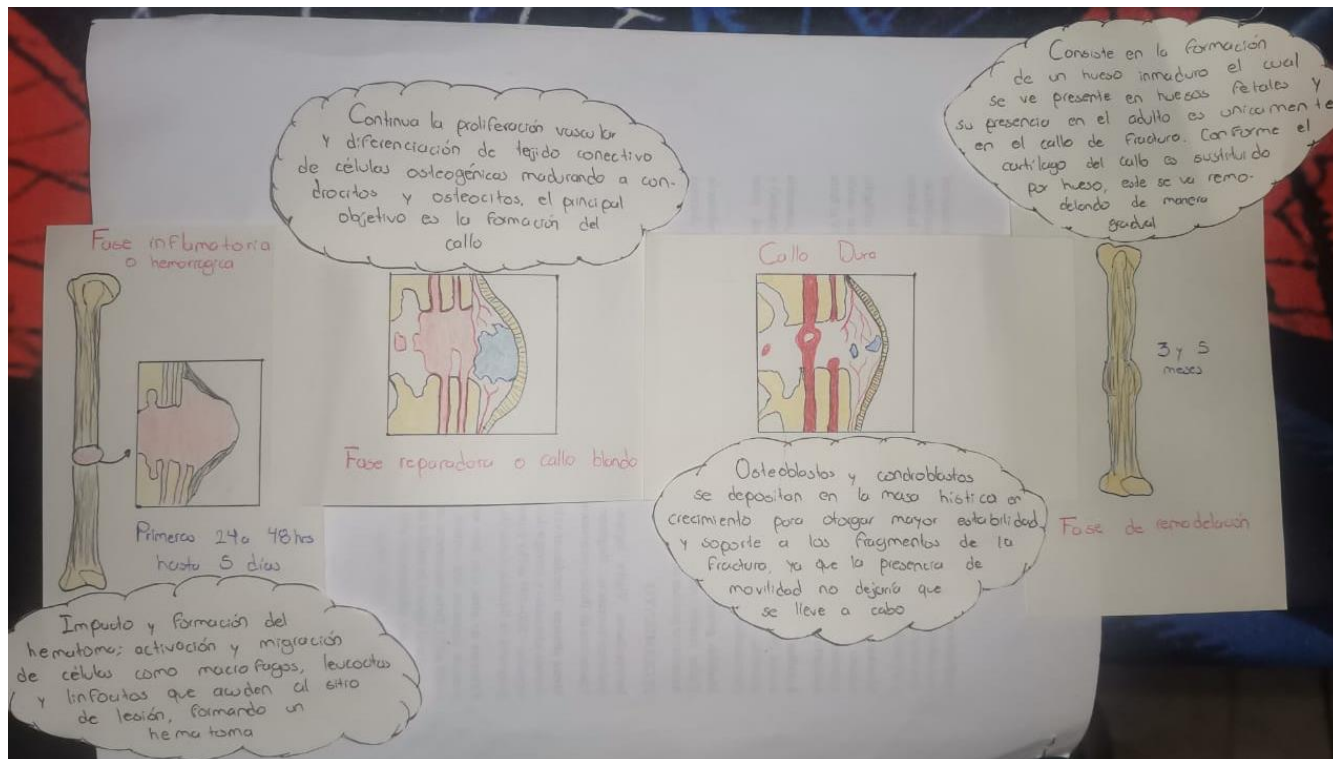 Fase inflamatoria
o hemorragica
Primeras 24 a 48 hrs
hasta 5 días
Impacto y formación del
hematoma; activación y migración
de células como macrofagos, leucocitos
y linfocitos que acuden al sitio
de lesión, formando un
hematoma
Continua la proliferación vascular
y diferenciación de tejido conectivo
de células osteogénicas madurando a con-
drocitos y osteocitos, el principal
objetivo es la formación del
callo
Fase reparadora o callo blando
Callo Duro
Osteoblastos y condroblastos
se depositan en la masa histica en
crecimiento para otorgar mayor estabilidad
y soporte a los fragmentos de la
fractura, ya que la presencia de
movilidad no dejaría que
se lleve a cabo
Consiste en la formación
de un hueso inmaduro el cual
se ve presente en huesos fetales y
su presencia en el adulto es unicamente
en el callo de fractura. Conforme el
cartílago del callo es sustituido
por hueso, este se va remo-
delando de manera
gradual
3 y 5
meses
Fase de remodelación